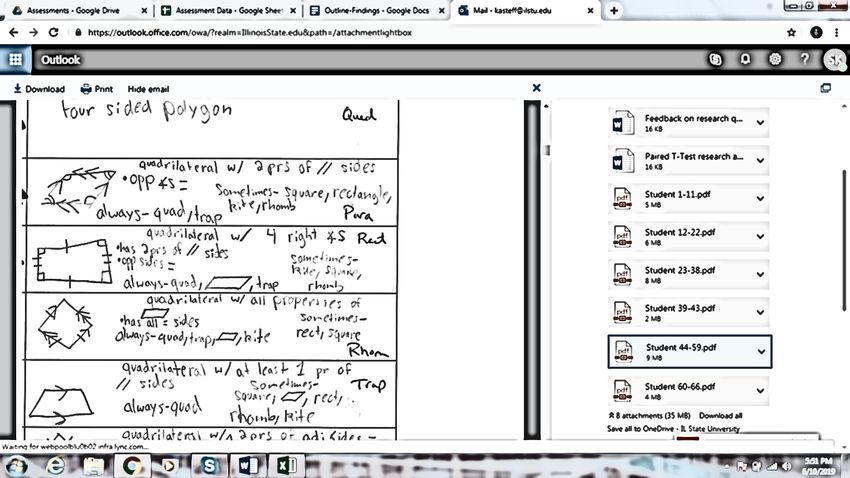 Assessments - Google Drive
Assessment Data - Google Sheet
Outline-Findings - Google Docs
Mail - kasteff@ilstu.edu
https://outlook.office.com/owa/?realm=IllinoisState.edu&path=/attachmentlightbox
Outlook
SK
Download
Print
Hide email
four sided polygon
Quad
quadrilateral w/ 2 prs of // sides
• opp ∡s =
sometimes- square, rectangle,
kite, rhomb
always- quad, trap
Para
quadrilateral w/ 4 right ∡s
Rect
• has 2 prs of // sides
• opp sides =
sometimes-
kite, square,
rhomb
always- quad, ▱, trap
quadrilateral w/ all properties of
▱
• has all = sides
sometimes-
rect, square
always- quad, trap, ▱, kite
Rhom
quadrilateral w/ at least 1 pr of
// sides
Trap
sometimes-
square, ▱, rect,
always- quad
rhomb, kite
quadrilateral w/ 2 prs of adj sides =
Feedback on research q...
16 KB
Paired T-Test research a...
16 KB
Student 1-11.pdf
5 MB
Student 12-22.pdf
6 MB
Student 23-38.pdf
8 MB
Student 39-43.pdf
2 MB
Student 44-59.pdf
9 MB
Student 60-66.pdf
4 MB
8 attachments (35 MB) Download all
Save all to OneDrive - IL State University
Waiting for webpoolblu0b02.infra.lync.com...
5:51 PM
6/10/2019